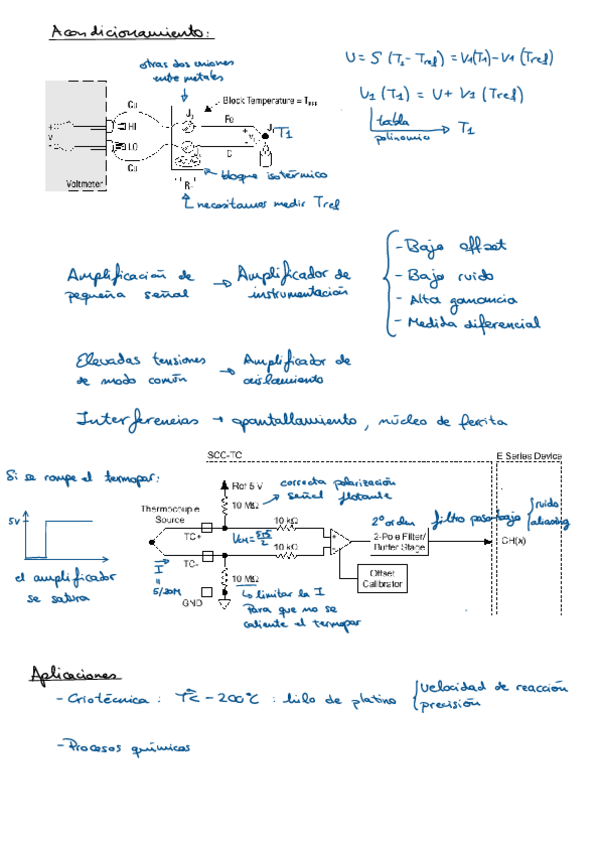 Acondicionamiento:
otras dos uniones
entre metales
U = S (T1 - Tref) = V1(T1) - V1 (Tref)
U1 (T1) = U + V1 (Tref)
tabla
polinomio
T1
Cu
HI
LO
Cu
Voltmeter
Block Temperature = TREF
Fe
C
J1
T1
bloque isotérmico
necesitamos medir Tref
Amplificación de
pequeña señal
Amplificador de
instrumentación
- Bajo offset
- Bajo ruido
- Alta ganancia
- Medida diferencial
Elevadas tensiones
de modo común
Amplificador de
aislamiento
Interferencias → apantallamiento, núcleo de ferrita
Si se rompe el termopar:
5V
el amplificador
se satura
SCC-TC
E Series Device
Ref 5 V
10 MΩ
correcta polarización
señal flotante
Thermocouple
Source
TC+
TC-
GND
10 kΩ
10 kΩ
I
5/20M
10 MΩ
limitar la I
Para que no se
caliente el termopar
2º orden
filtro paso-bajo
ruido
aliasing
2-Pole Filter/
Buffer Stage
Offset
Calibrator
CH(x)
Aplicaciones
- Criotécnica: - 200ºC : hilo de platino
velocidad de reacción
precisión
- Procesos químicos